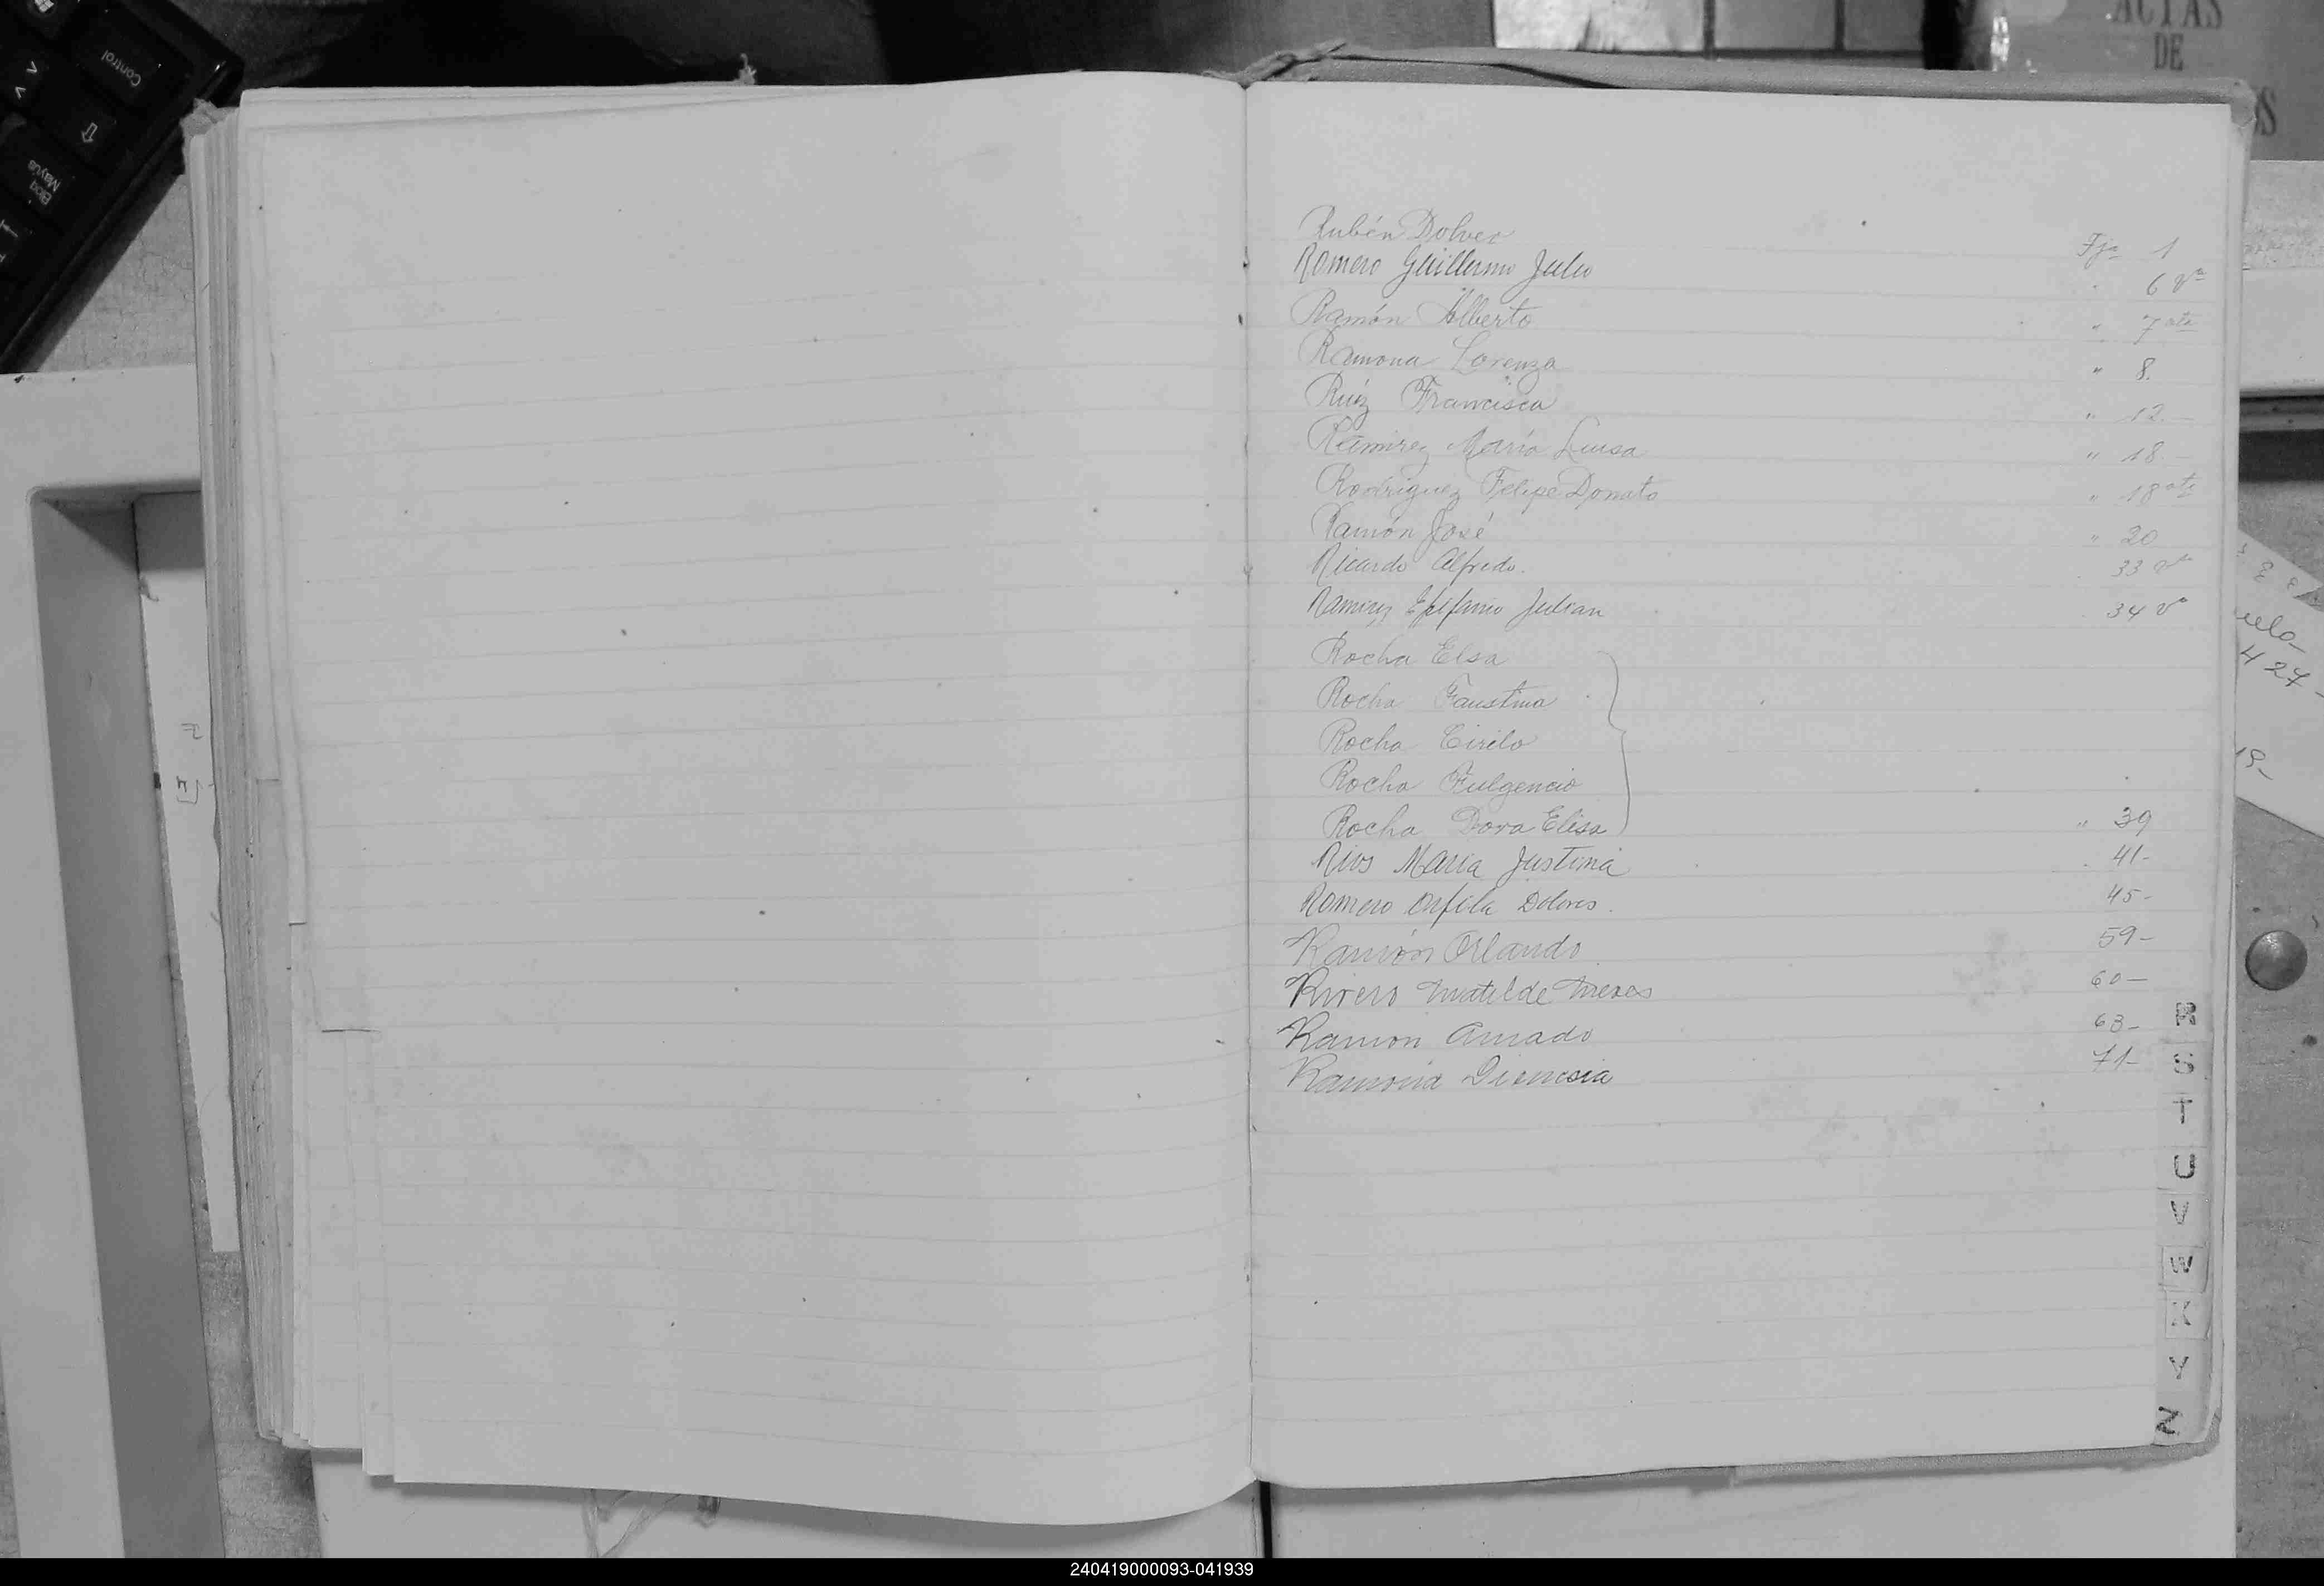 Control
Bloq
Mayús
ACTAS
DE
Rubén Dolver Fjs 1
Romero Guillermo Julio " 6 vta
Ramón Alberto " 7 vta
Ramona Lorenza " 8.
Ruíz Francisca " 12.-
Ramirez María Luisa " 18.-
Rodriguez Felipe Donato " 18 vta
Ramón José " 30
Ricardo Alfredo. 33 vta
Ramirez Epifanio Julian 34 v
Rocha Elsa
Rocha Faustina
Rocha Cirilo
Rocha Fulgencio
Rocha Dora Elisa " 39
Rios Maria Justina 41-
Romero Orfila Dolores. 45-
Ramón Orlando. 59-
Rivero Matilde 60-
Ramon Amado 63-
Ramona Dionisia 71-
R
S
T
U
V
W
X
Y
Z
240419000093-041939